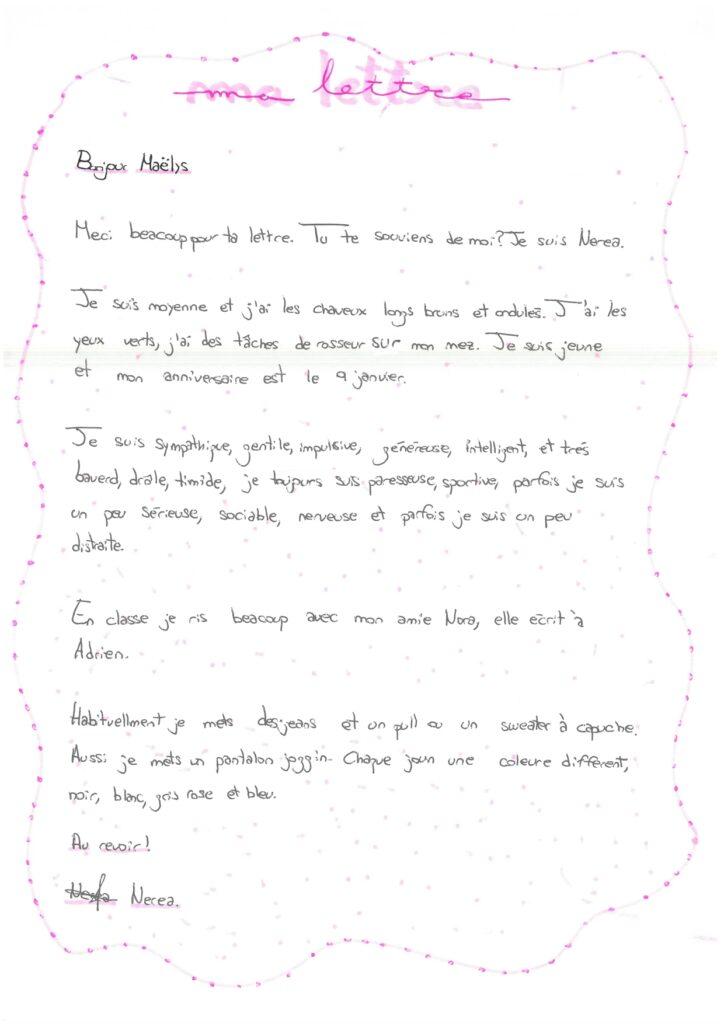 ma lettre
Bonjour Maëlys
Meci beacoup pour ta lettre. Tu te souviens de moi? Je suis Nerea.
Je suis moyenne et j'ai les chaveux longs bruns et ondulés. J'ai les
yeux verts, j'ai des tâches de rosseur sur mon mez. Je suis jeune
et mon anniversaire est le 9 janvier.
Je suis sympathique, gentile, impulsive, généreuse, intelligent, et trés
baverd, drôle, timide, je toujours suis paresseuse, sportive, parfois je suis
un peu sérieuse, sociable, nerveuse et parfois je suis un peu
distraite.
En classe je ris beacoup avec mon amie Nora, elle ecrit à
Adrien.
Habituellment je mets des jeans et un pull ou un sweater à capuche.
Aussi je mets un pantalon joggin. Chaque joun une coleure différent,
noir, blanc, gris rose et bleu.
Au revoir!
Nerea.